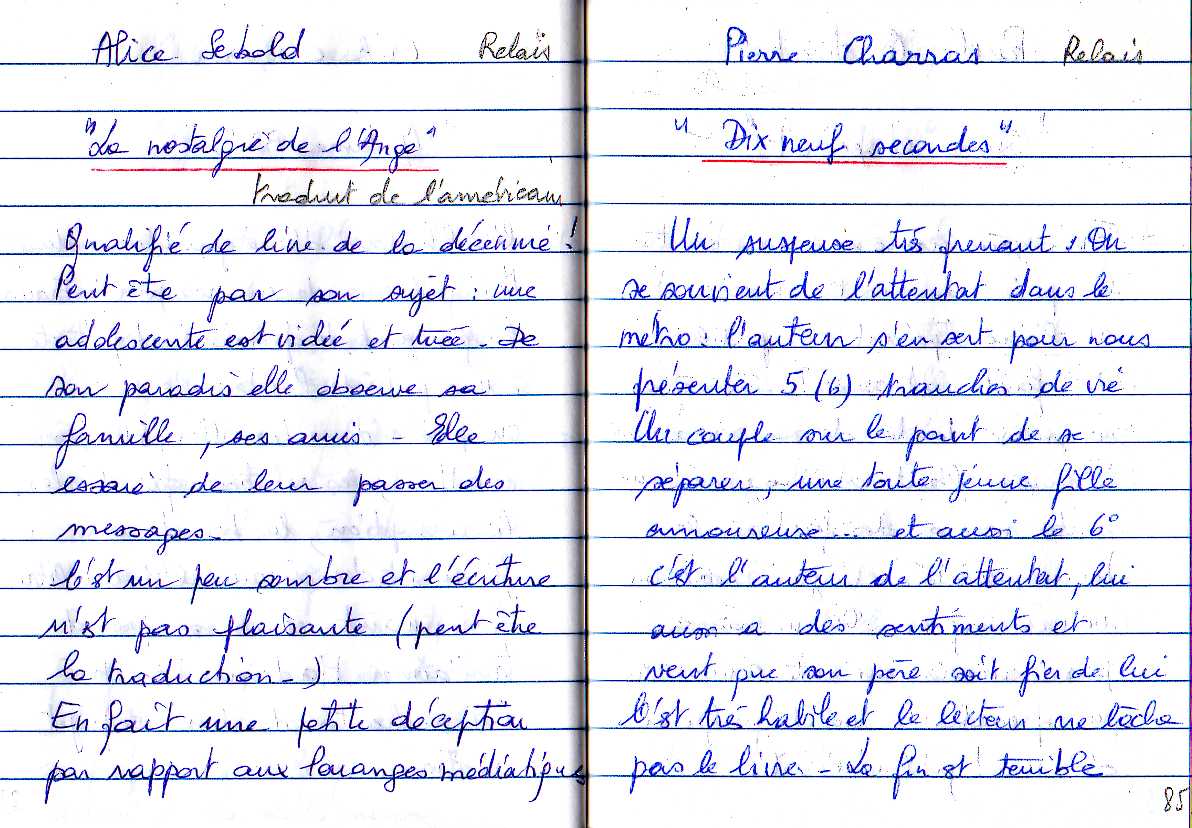 Alice Sebold Relais
"La nostalgie de l'Ange"
traduit de l'américain
Qualifié de livre de la décennie !
Peut être par son sujet : une
adolescente est violée et tuée. De
son paradis elle observe sa
famille, ses amis - Elle
essaie de leur passer des
messages.
C'est un peu sombre et l'écriture
n'est pas plaisante (peut être
la traduction -)
En fait une petite déception
par rapport aux louanges médiatiques
Pierre Charras Relais
"Dix neuf secondes"
Un suspense très prenant. On
se souvient de l'attentat dans le
métro : l'auteur s'en sert pour nous
présenter 5 (6) tranches de vie
Un couple sur le point de se
séparer, une toute jeune fille
amoureuse... et aussi le 6°
c'est l'auteur de l'attentat, lui
aussi a des sentiments et
veut que son père soit fier de lui
C'est très habile et le lecteur ne lâche
pas le livre - La fin est terrible
85